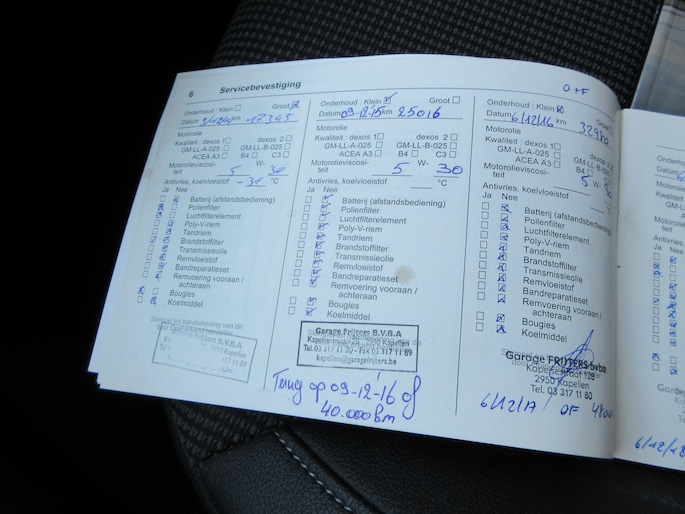 6 Servicebevestiging
O+F
Onderhoud : Klein Groot
Datum km 17345
Motorolie
Kwaliteit : dexos 1 dexos 2
GM-LL-A-025 GM-LL-B-025
ACEA A3 B4 C3
Motorolieviscosi- 5 W- 30
teit
Antivries, koelvloeistof -31 °C
Ja Nee
Batterij (afstandsbediening)
Pollenfilter
Luchtfilterelement
Poly-V-riem
Tandriem
Brandstoffilter
Transmissieolie
Remvloeistof
Bandreparatieset
Remvoering vooraan /
achteraan
Bougies
Koelmiddel
Stempel en handtekening van de
door Opel erkend hersteller
Onderhoud : Klein Groot
Datum 09-12-15 km 25016
Motorolie
Kwaliteit : dexos 1 dexos 2
GM-LL-A-025 GM-LL-B-025
ACEA A3 B4 C3
Motorolieviscosi- 5 W- 30
teit
Antivries, koelvloeistof °C
Ja Nee
Batterij (afstandsbediening)
Pollenfilter
Luchtfilterelement
Poly-V-riem
Tandriem
Brandstoffilter
Transmissieolie
Remvloeistof
Bandreparatieset
Remvoering vooraan /
achteraan
Bougies
Koelmiddel
Garage Frijters B.V.B.A
Tel. 03 317 11 80 - Fax 03 317 11 89
kapellen@garagefrijters.be
Terug op 09-12-'16 of
40.000 km
Onderhoud : Klein Groot
Datum 6/12/16 km
Motorolie
Kwaliteit : dexos 1 dexos 2
GM-LL-A-025 GM-LL-B-025
ACEA A3 B4
Motorolieviscosi-
teit 5 W-
Antivries, koelvloeistof
Ja Nee
Batterij (afstandsbediening)
Pollenfilter
Luchtfilterelement
Poly-V-riem
Tandriem
Brandstoffilter
Transmissieolie
Remvloeistof
Bandreparatieset
Remvoering vooraan /
achteraan
Bougies
Koelmiddel
Garage FRIJTERS bvba
Kapelsestraat 128
2950 Kapellen
Tel. 03 317 11 80
6/12/17 / OF
Onderhoud
Datum
Motorolie
Kwaliteit
Ja Nee
6/12/18